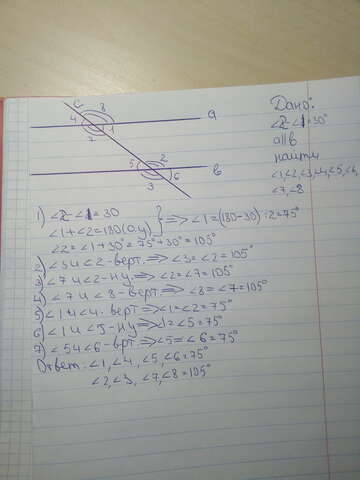 c
8
4
1
7
a
5
2
6
3
b
Дано:
∠2-∠1=30°
a||b
найти
∠1,∠2,∠3,∠4,∠5,∠6,
∠7,∠8
1) ∠2-∠1=30
∠1+∠2=180(О.у) } => ∠1=(180-30):2=75°
∠2=∠1+30°=75°+30°=105°
2) ∠3 и ∠2-верт.=>∠3=∠2=105°
3) ∠7 и ∠2-н.у.=>∠2=∠7=105°
4) ∠7 и ∠8-верт=>∠8=∠7=105°
5) ∠1 и ∠4. верт=>∠1=∠2=75°
6) ∠1 и ∠5-ну=>∠1=∠5=75°
7) ∠5 и ∠6-врт.=>∠5=∠6=75°
Ответ: ∠1,∠4,∠5,∠6=75°
∠2,∠3,∠7,∠8=105°